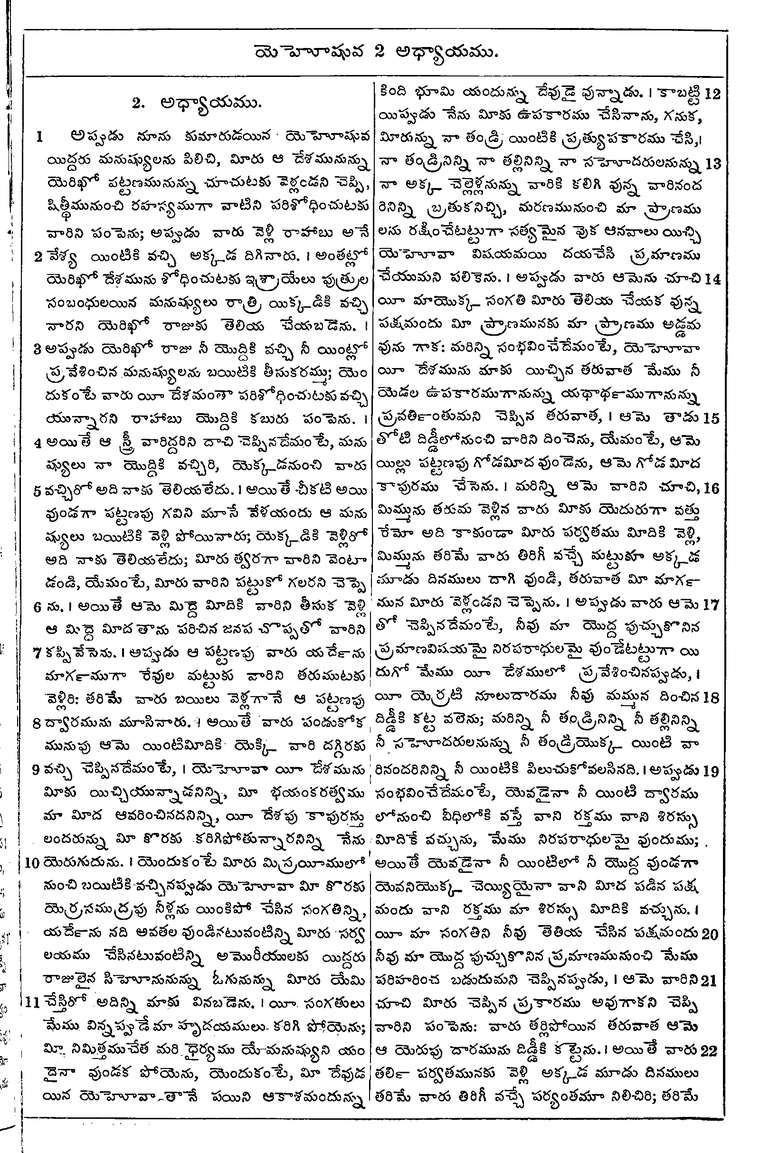 యెహోషువ 2 అధ్యాయము.
2. అధ్యాయము.
1 అప్పుడు నూను కుమారుడయిన యెహోషువ
యిద్దరు మనుష్యులను పిలిచి, మీరు ఆ దేశమునున్ను
యెరిఖో పట్టణమునున్ను చూచుటకు వెళ్లండని చెప్పి,
షిత్థీమునుంచి రహస్యముగా వాటిని పరిశోధించుటకు
వారిని పంపెను; అప్పుడు వారు వెళ్లి రాహాబు అనే
2 వేశ్య యింటికి వచ్చి అక్కడ దిగినారు. । అంతట్లో
యెరిఖో దేశమును శోధించుటకు ఇశ్రాయేలు పుత్రుల
సంబంధులయిన మనుష్యులు రాత్రి యిక్కడికి వచ్చి
నారని యెరిఖో రాజుకు తెలియ చేయబడెను. ।
3 అప్పుడు యెరిఖో రాజు నీ యొద్దికి వచ్చి నీ యింట్లో
ప్రవేశించిన మనుష్యులను బయిటికి తీసుకరమ్ము; యెం
దుకంటే వారు యీ దేశమంతా పరిశోధించుటకు వచ్చి
యున్నారని రాహాబు యొద్దికి కబురు పంపెను. ।
4 అయితే ఆ స్త్రీ వారిద్దరిని దాచి చెప్పినదేమంటే, మను
ష్యులు నా యొద్దికి వచ్చిరి, యెక్కడనుంచి వారు
5 వచ్చిరో అది నాకు తెలియలేదు. । అయితే చీకటి అయి
వుండగా పట్టణపు గవిని మూసే వేళయందు ఆ మను
ష్యులు బయిటికి వెళ్లి పోయినారు; యెక్కడికి వెళ్లిరో
అది నాకు తెలియలేదు; మీరు త్వరగా వారిని వెంటా
డండి, యేమంటే, మీరు వారిని పట్టుకో గలరని చెప్పె
6 ను. । అయితే ఆమె మిద్దె మీదికి వారిని తీసుక వెళ్లి
ఆ మిద్దె మీద తాను పరిచిన జనప చొప్పతో వారిని
7 కప్పివేసెను. । అప్పుడు ఆ పట్టణపు వారు యర్దేను
మార్గముగా రేవుల మట్టుకు వారిని తరుముటకు
వెళ్లిరి: తరిమే వారు బయిలు వెళ్లగానే ఆ పట్టణపు
8 ద్వారమును మూసినారు. । అయితే వారు పండుకోక
మునుపు ఆమె యింటిమీదికి యెక్కి వారి దగ్గిరకు
9 వచ్చి చెప్పినదేమంటే, । యెహోవా యీ దేశమును
మీకు యిచ్చియున్నాడనిన్ని, మీ భయంకరత్వము
మా మీద ఆవరించినదనిన్ని, యీ దేశపు కాపురస్తు
లందరున్ను మీ కొరకు కరిగిపోతున్నారనిన్ని నేను
10 యెరుగుదును. । యెందుకంటే మీరు మిస్రయీములో
నుంచి బయిటికి వచ్చినప్పుడు యెహోవా మీ కొరకు
యెర్రసముద్రపు నీళ్లను యింకిపో చేసిన సంగతిన్ని,
యర్దేను నది అవతల వుండినటువంటిన్ని మీరు సర్వ
లయము చేసినటువంటిన్ని అమోరీయులకు యిద్దరు
రాజులైన సిహోనునున్ను ఓగునున్ను మీరు యేమి
11 చేస్తిరో అదిన్ని మాకు వినబడెను. । యీ సంగతులు
మేము విన్నప్పుడే మా హృదయములు కరిగి పోయెను;
మీ నిమిత్తముచేత మరి ధైర్యము యే మనుష్యుని యం
దైనా వుండక పోయెను, యెందుకంటే, మీ దేవుడ
యిన యెహోవా తానే పయిని ఆకాశమందున్ను
కింది భూమి యందున్ను దేవుడై వున్నాడు. । కాబట్టి 12
యిప్పుడు నేను మీకు ఉపకారము చేసినాను, గనుక,
మీరున్ను నా తండ్రి యింటికి ప్రత్యుపకారము చేసి,।
నా తండ్రినిన్ని నా తల్లినిన్ని నా సహోదరులనున్ను 13
నా అక్క చెల్లెళ్లనున్ను వారికి కలిగి వున్న వారినంద
రినిన్ని బ్రతుకనిచ్చి, మరణమునుంచి మా ప్రాణము
లను రక్షించేటట్టుగా సత్యమైన వుక ఆనవాలు యిచ్చి
యెహోవా విషయమయి దయచేసి ప్రమాణము
చేయుమని పలికెను. । అప్పుడు వారు ఆమెను చూచి 14
యీ మాయొక్క సంగతి మీరు తెలియ చేయక వున్న
పక్షమందు మీ ప్రాణమునకు మా ప్రాణము అడ్డమ
వును గాక: మరిన్ని సంభవించేదేమంటే, యెహోవా
యీ దేశమును మాకు యిచ్చిన తరువాత మేము నీ
యెడల ఉపకారముగానున్ను యథార్థముగానున్ను
ప్రవర్తింతుమని చెప్పిన తరువాత, । ఆమె తాడు 15
తోటి దిడ్డీలోనుంచి వారిని దించెను, యేమంటే, ఆమె
యిల్లు పట్టణపు గోడమీద వుండెను, ఆమె గోడ మీద
కాపురము చేసెను. । మరిన్ని ఆమె వారిని చూచి, 16
మిమ్మును తరుమ వెళ్లిన వారు మీకు యెదురుగా వత్తు
రేమో అది కాకుండా మీరు పర్వతము మీదికి వెళ్లి,
మిమ్మును తరిమే వారు తిరిగీ వచ్చే మట్టుకూ అక్కడ
మూడు దినములు దాగి వుండి, తరువాత మీ మార్గ
మున మీరు వెళ్లండని చెప్పెను. । అప్పుడు వారు ఆమె 17
తో చెప్పినదేమంటే, నీవు మా యొద్ద పుచ్చుకొనిన
ప్రమాణవిషయమై నిరపరాధులమై వుండేటట్టుగా యి
దుగో మేము యీ దేశములో ప్రవేశించినప్పుడు, ।
యీ యెర్రటి నూలుదారము నీవు మమ్మున దించిన 18
దిడ్డీకి కట్ట వలెను; మరిన్ని నీ తండ్రినిన్ని నీ తల్లినిన్ని
నీ సహోదరులనున్ను నీ తండ్రియొక్క యింటి వా
రినందరినిన్ని నీ యింటికి పిలుచుకోవలసినది. । అప్పుడు 19
సంభవించేదేమంటే, యెవడైనా నీ యింటి ద్వారము
లోనుంచి వీధిలోకి వస్తే వాని రక్తము వాని శిరస్సు
మీదికే వచ్చును, మేము నిరపరాధులమై వుందుము;
అయితే యెవడైనా నీ యింటిలో నీ యొద్ద వుండగా
యెవనియొక్క చెయ్యియైనా వాని మీద పడిన పక్ష
మందు వాని రక్తము మా శిరస్సు మీదికి వచ్చును. ।
యీ మా సంగతిని నీవు తెతియ చేసిన పక్షమందు 20
నీవు మా యొద్ద పుచ్చుకొనిన ప్రమాణమునుంచి మేము
పరిహరించ బడుదుమని చెప్పినప్పుడు, । ఆమె వారిని 21
చూచి మీరు చెప్పిన ప్రకారము అవుగాకని చెప్పి
వారిని పంపెను: వారు తర్లిపోయిన తరువాత ఆమె
ఆ యెరుపు దారమును దిడ్డీకి కట్టెను. । అయితే వారు 22
తర్లి పర్వతమునకు వెళ్లి అక్కడ మూడు దినములు
తరిమే వారు తిరిగీ వచ్చే పర్యంతమూ నిలిచిరి; తరిమే